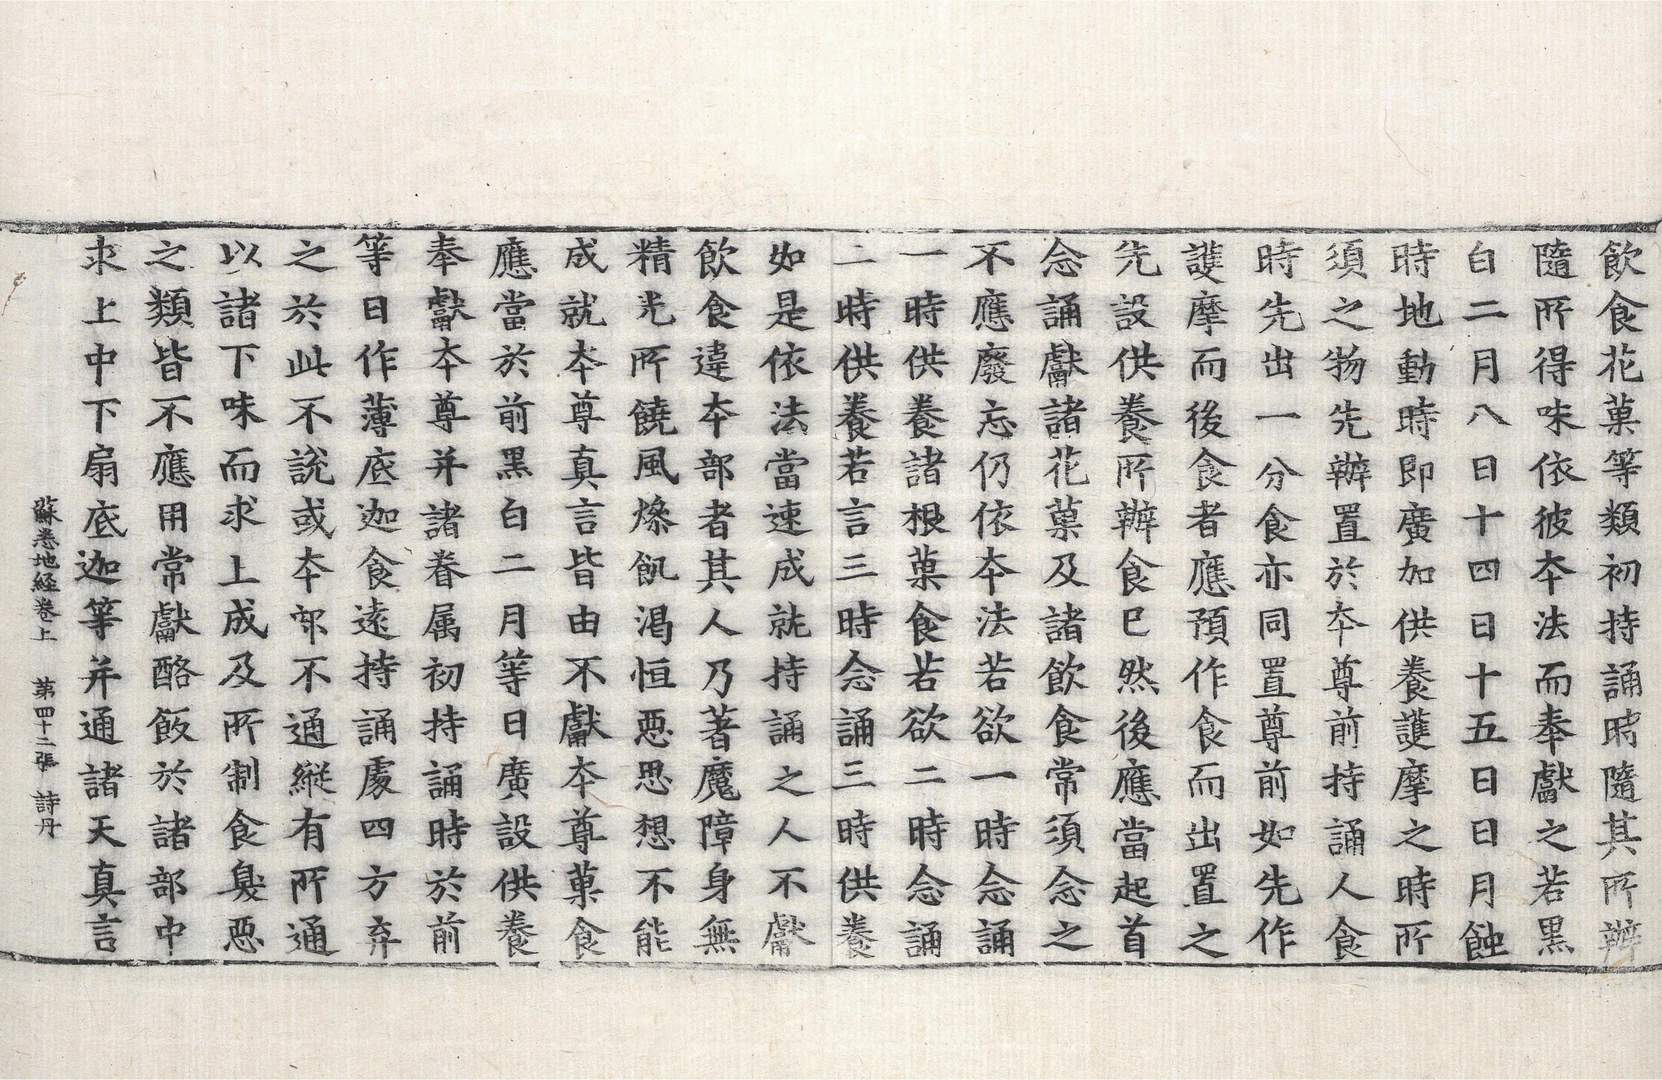 飲食花菓等類初持誦時隨其所辦
隨所得味依彼本法而奉獻之若黑
白二月八日十四日十五日日月蝕
時地動時即廣加供養護摩之時所
須之物先辦置於本尊前持誦人食
時先出一分食亦同置尊前如先作
護摩而後食者應預作食而出置之
先設供養所辦食已然後應當起首
念誦獻諸花菓及諸飲食常須念之
不應廢忘仍依本法若欲一時念誦
一時供養諸根菓食若欲二時念誦
二時供養若言三時念誦三時供養
如是依法當速成就持誦之人不獻
飲食違本部者其人乃著魔障身無
精光所饒風燥飢渴恒惡思想不能
成就本尊真言皆由不獻本尊菓食
應當於前黑白二月等日廣設供養
奉獻本尊并諸眷属初持誦時於前
等日作薄底迦食遠持誦處四方弃
之於此不說或本部不通縱有所通
以諸下味而求上成及所制食臭惡
之類皆不應用常獻酪飯於諸部中
求上中下扇底迦等并通諸天真言
蘇悉地経卷上 第四十二張 詩丹